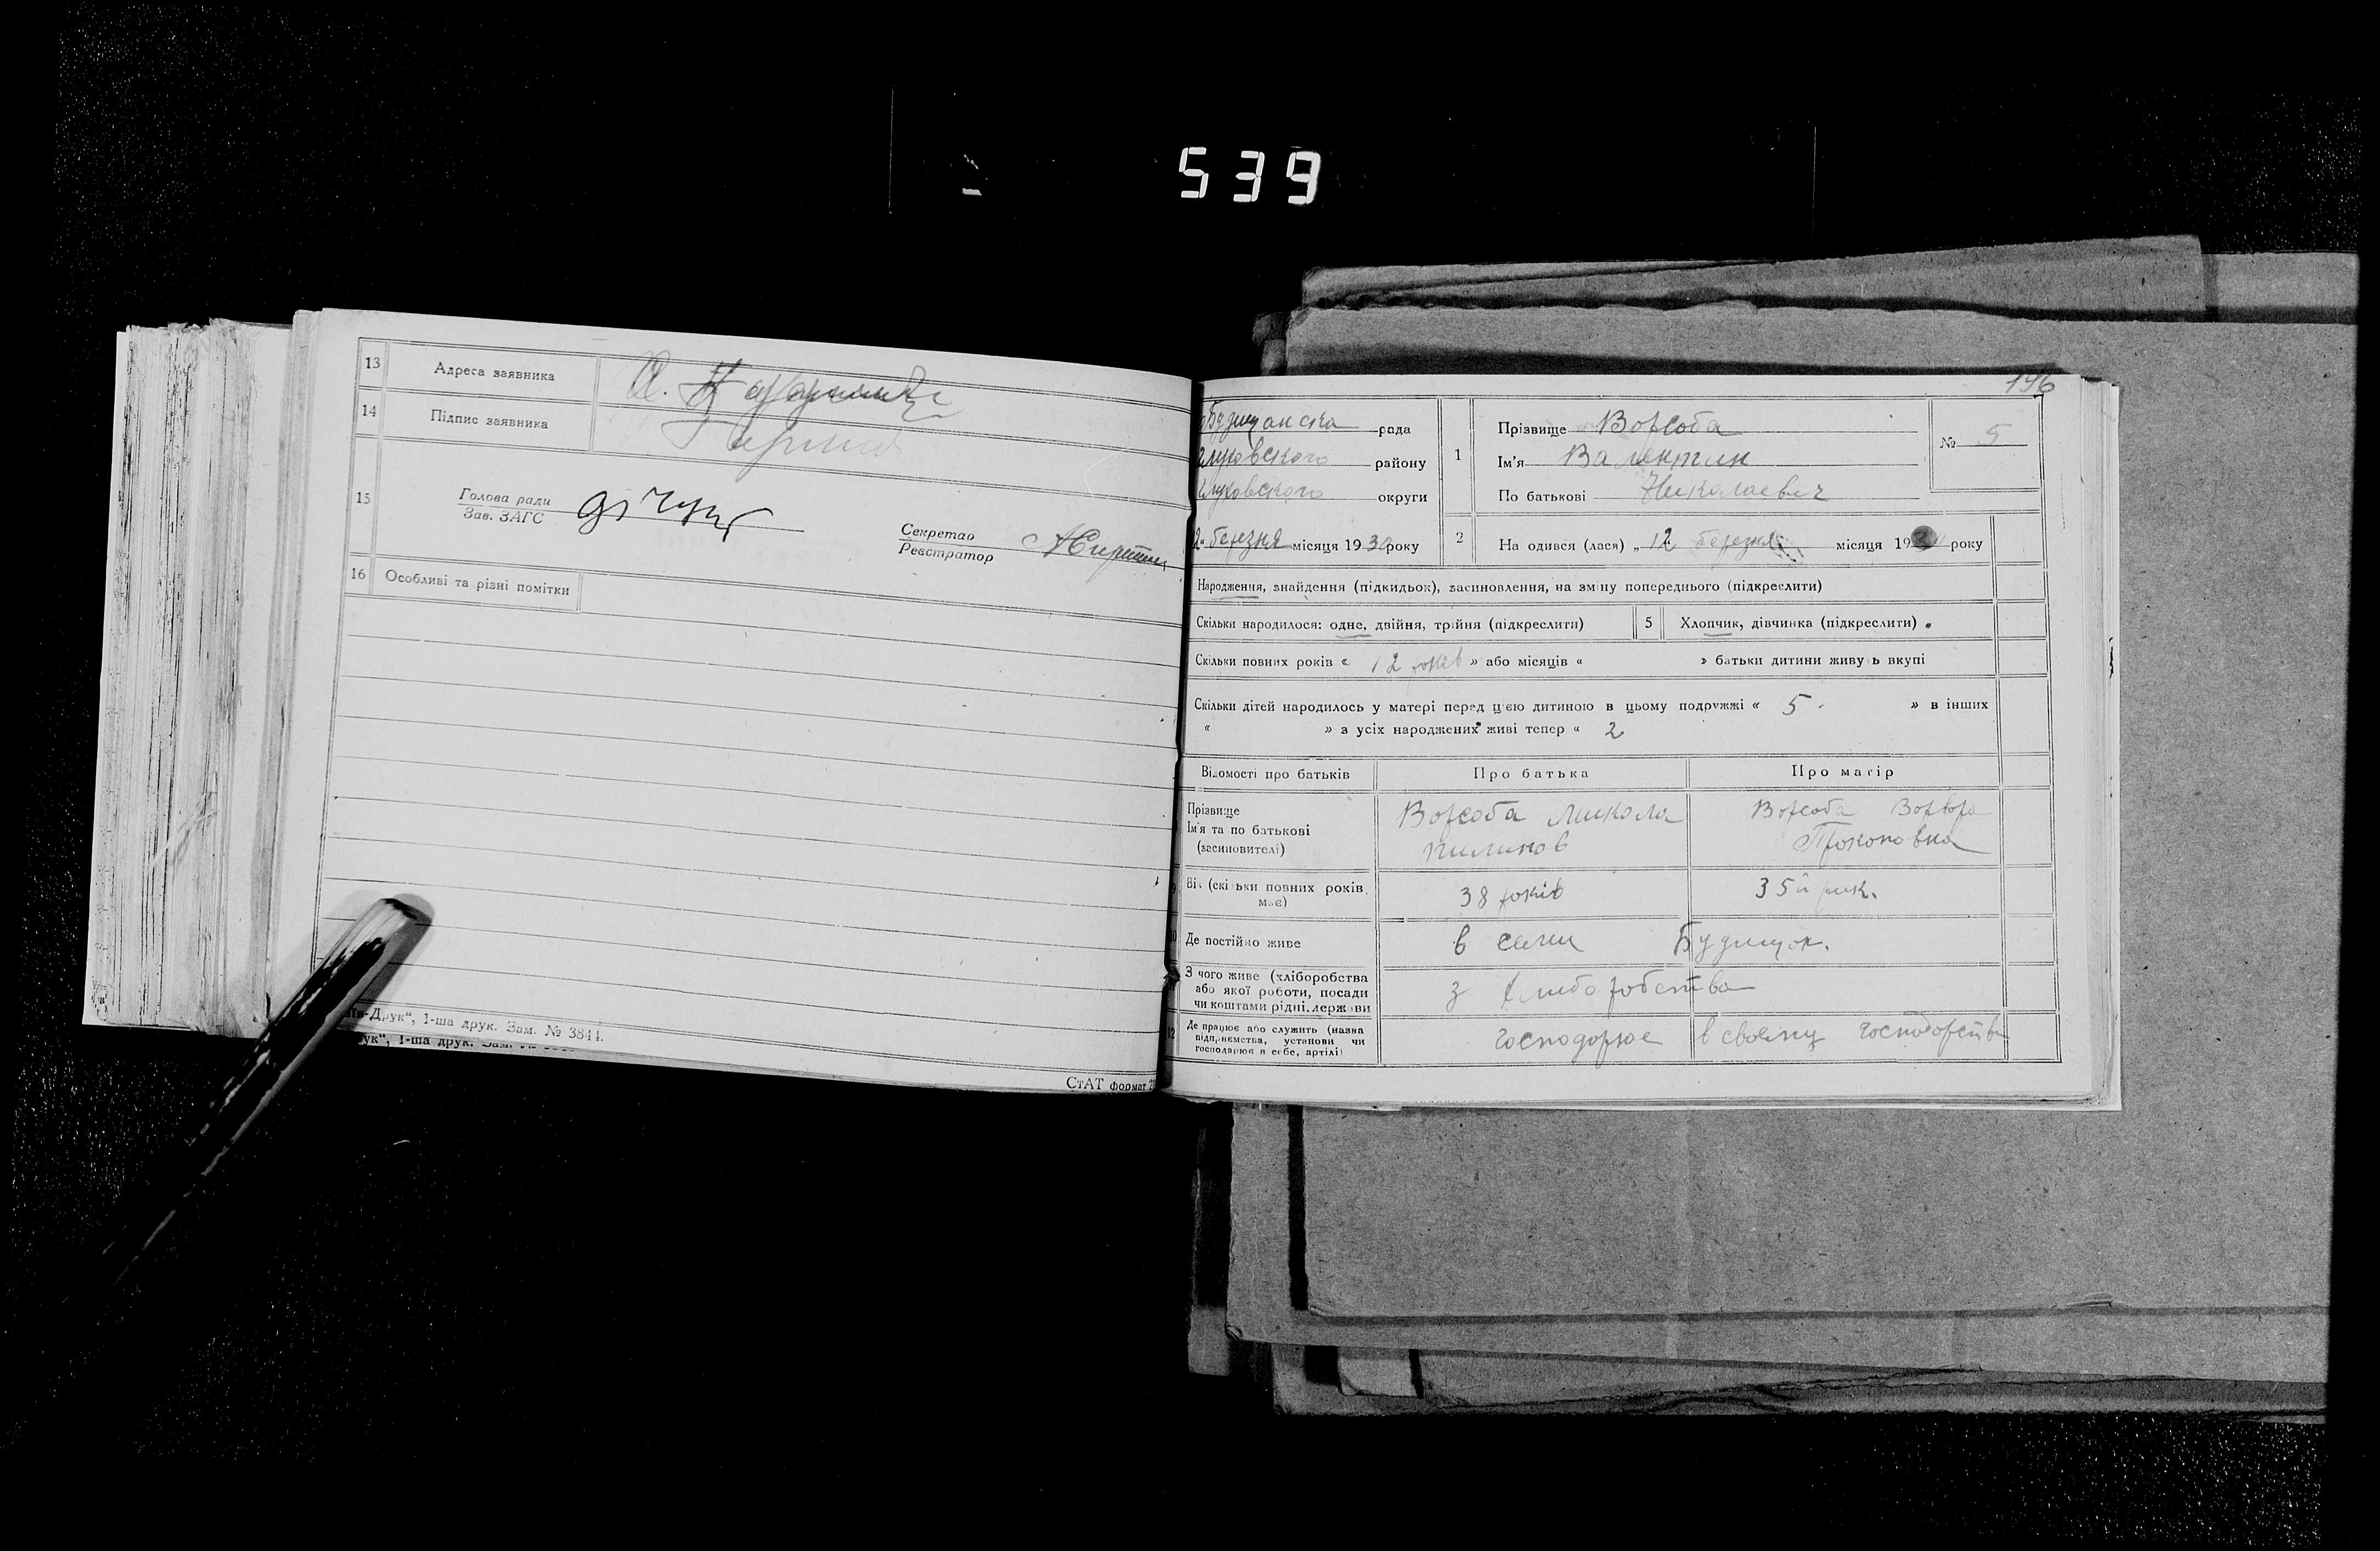 539
13 Адреса заявника
14 Підпис заявника
15 Голова ради
Зав. ЗАГС
Секретао
Реєстратор
16 Особливі та різні помітки
Друк“, 1-ша друк. Зам. № 3844.
1-ша друк.
СтАТ формат
196
Будищанска рада
Глуховского району
Глуховского округи
березня місяця 1930 року
1 Прізвище Ворсоба
Ім'я Валентин
По батькові Николаевич
№ 5
2 На одився (лася) „12 березня місяця 19 року
Народження, знайдення (підкидьок), засиновлення, на зміну попереднього (підкреслити)
Скільки народилося: одне, двійня, трійня (підкреслити) 5 Хлопчик, дівчинка (підкреслити)
Скільки повних років « 12 років » або місяців « » батьки дитини живу ь вкупі
Скільки дітей народилось у матері перед цією дитиною в цьому подружжі « 5 » в інших
« » з усіх народжених живі тепер « 2
Відомості про батьків Про батька Про матір
Прізвище
Ім'я та по батькові
(засиновителі)
Ворсоба Микола
Ворсоба Ворвора
Прокоповна
Вік (скільки повних років має) 38 років 35
Де постійно живе в Будищок.
З чого живе (хліборобства
або якої роботи, посади
чи коштами рідні, держави
з хлиборобства
Де працює або служить (назва
підприємства, установи чи
господарює в себе, артілі)
господорює в своєму господорстві